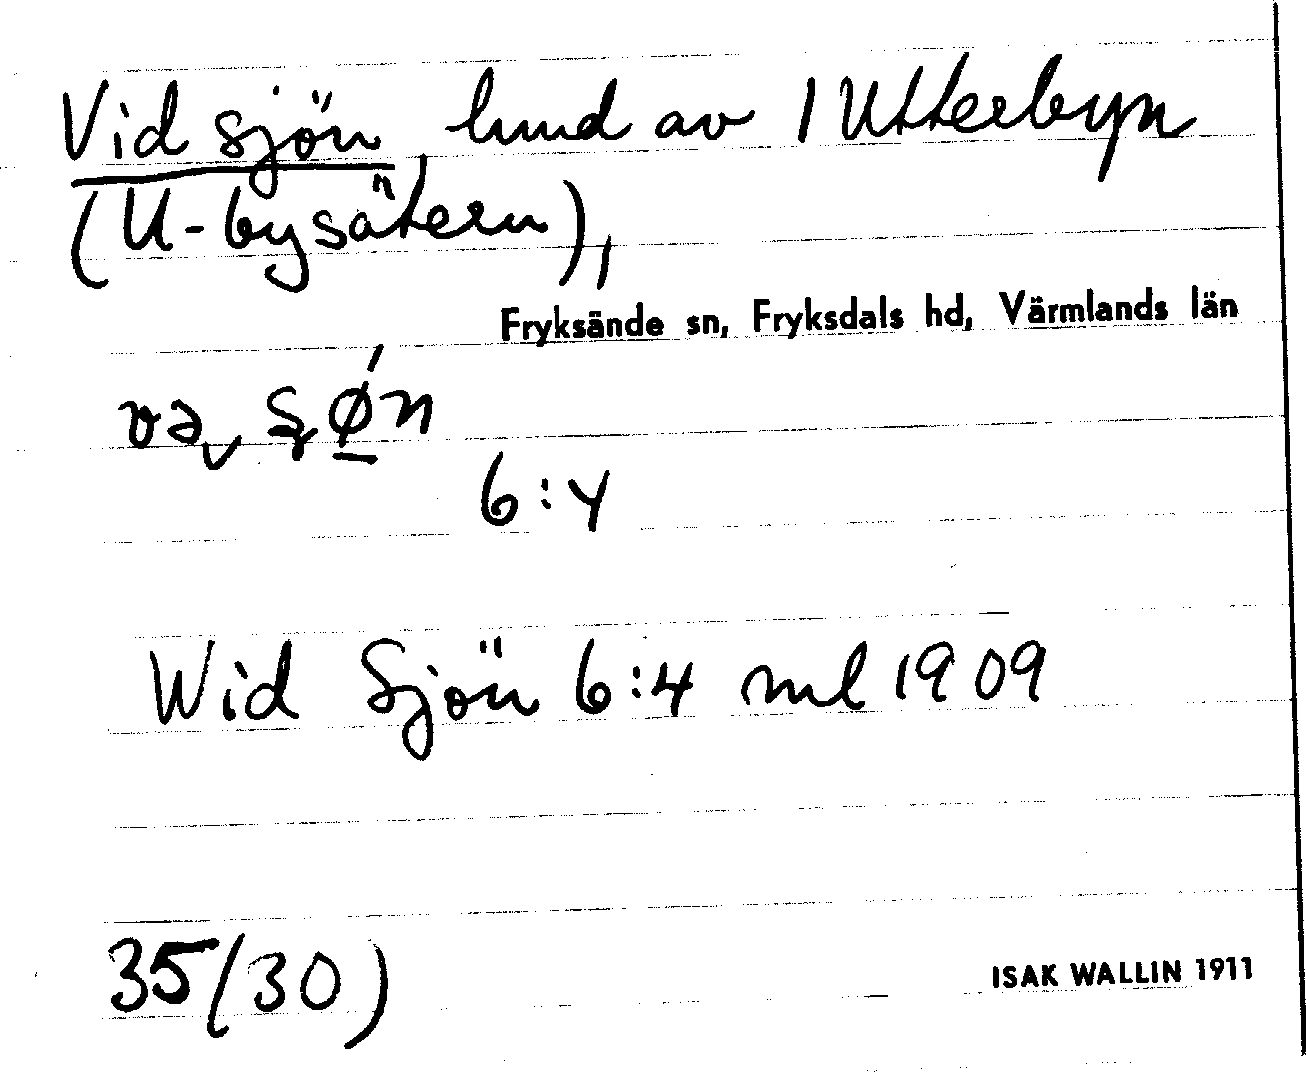 Vid sjön, hmd av 1 Utterbyn
(U-bysätern),
Fryksände sn, Fryksdals hd, Värmlands län
6:4
Wid Sjön 6:4 ml 1909
35(30)
ISAK WALLIN 1911